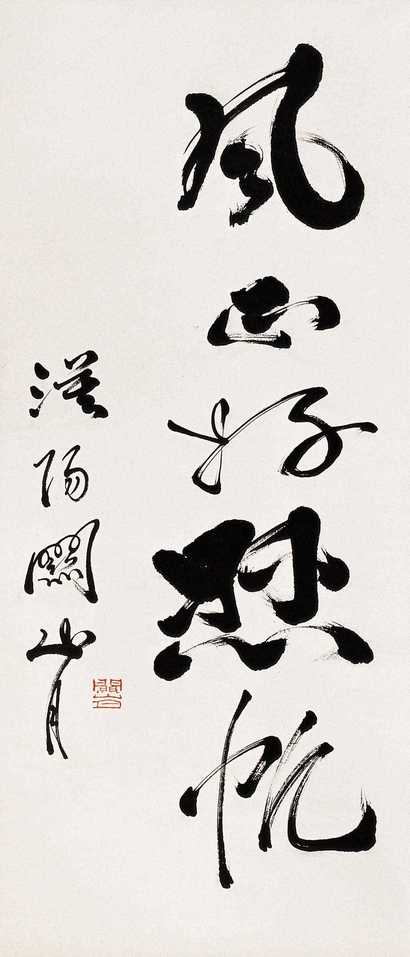 風正好懸帆
漠陽關山月